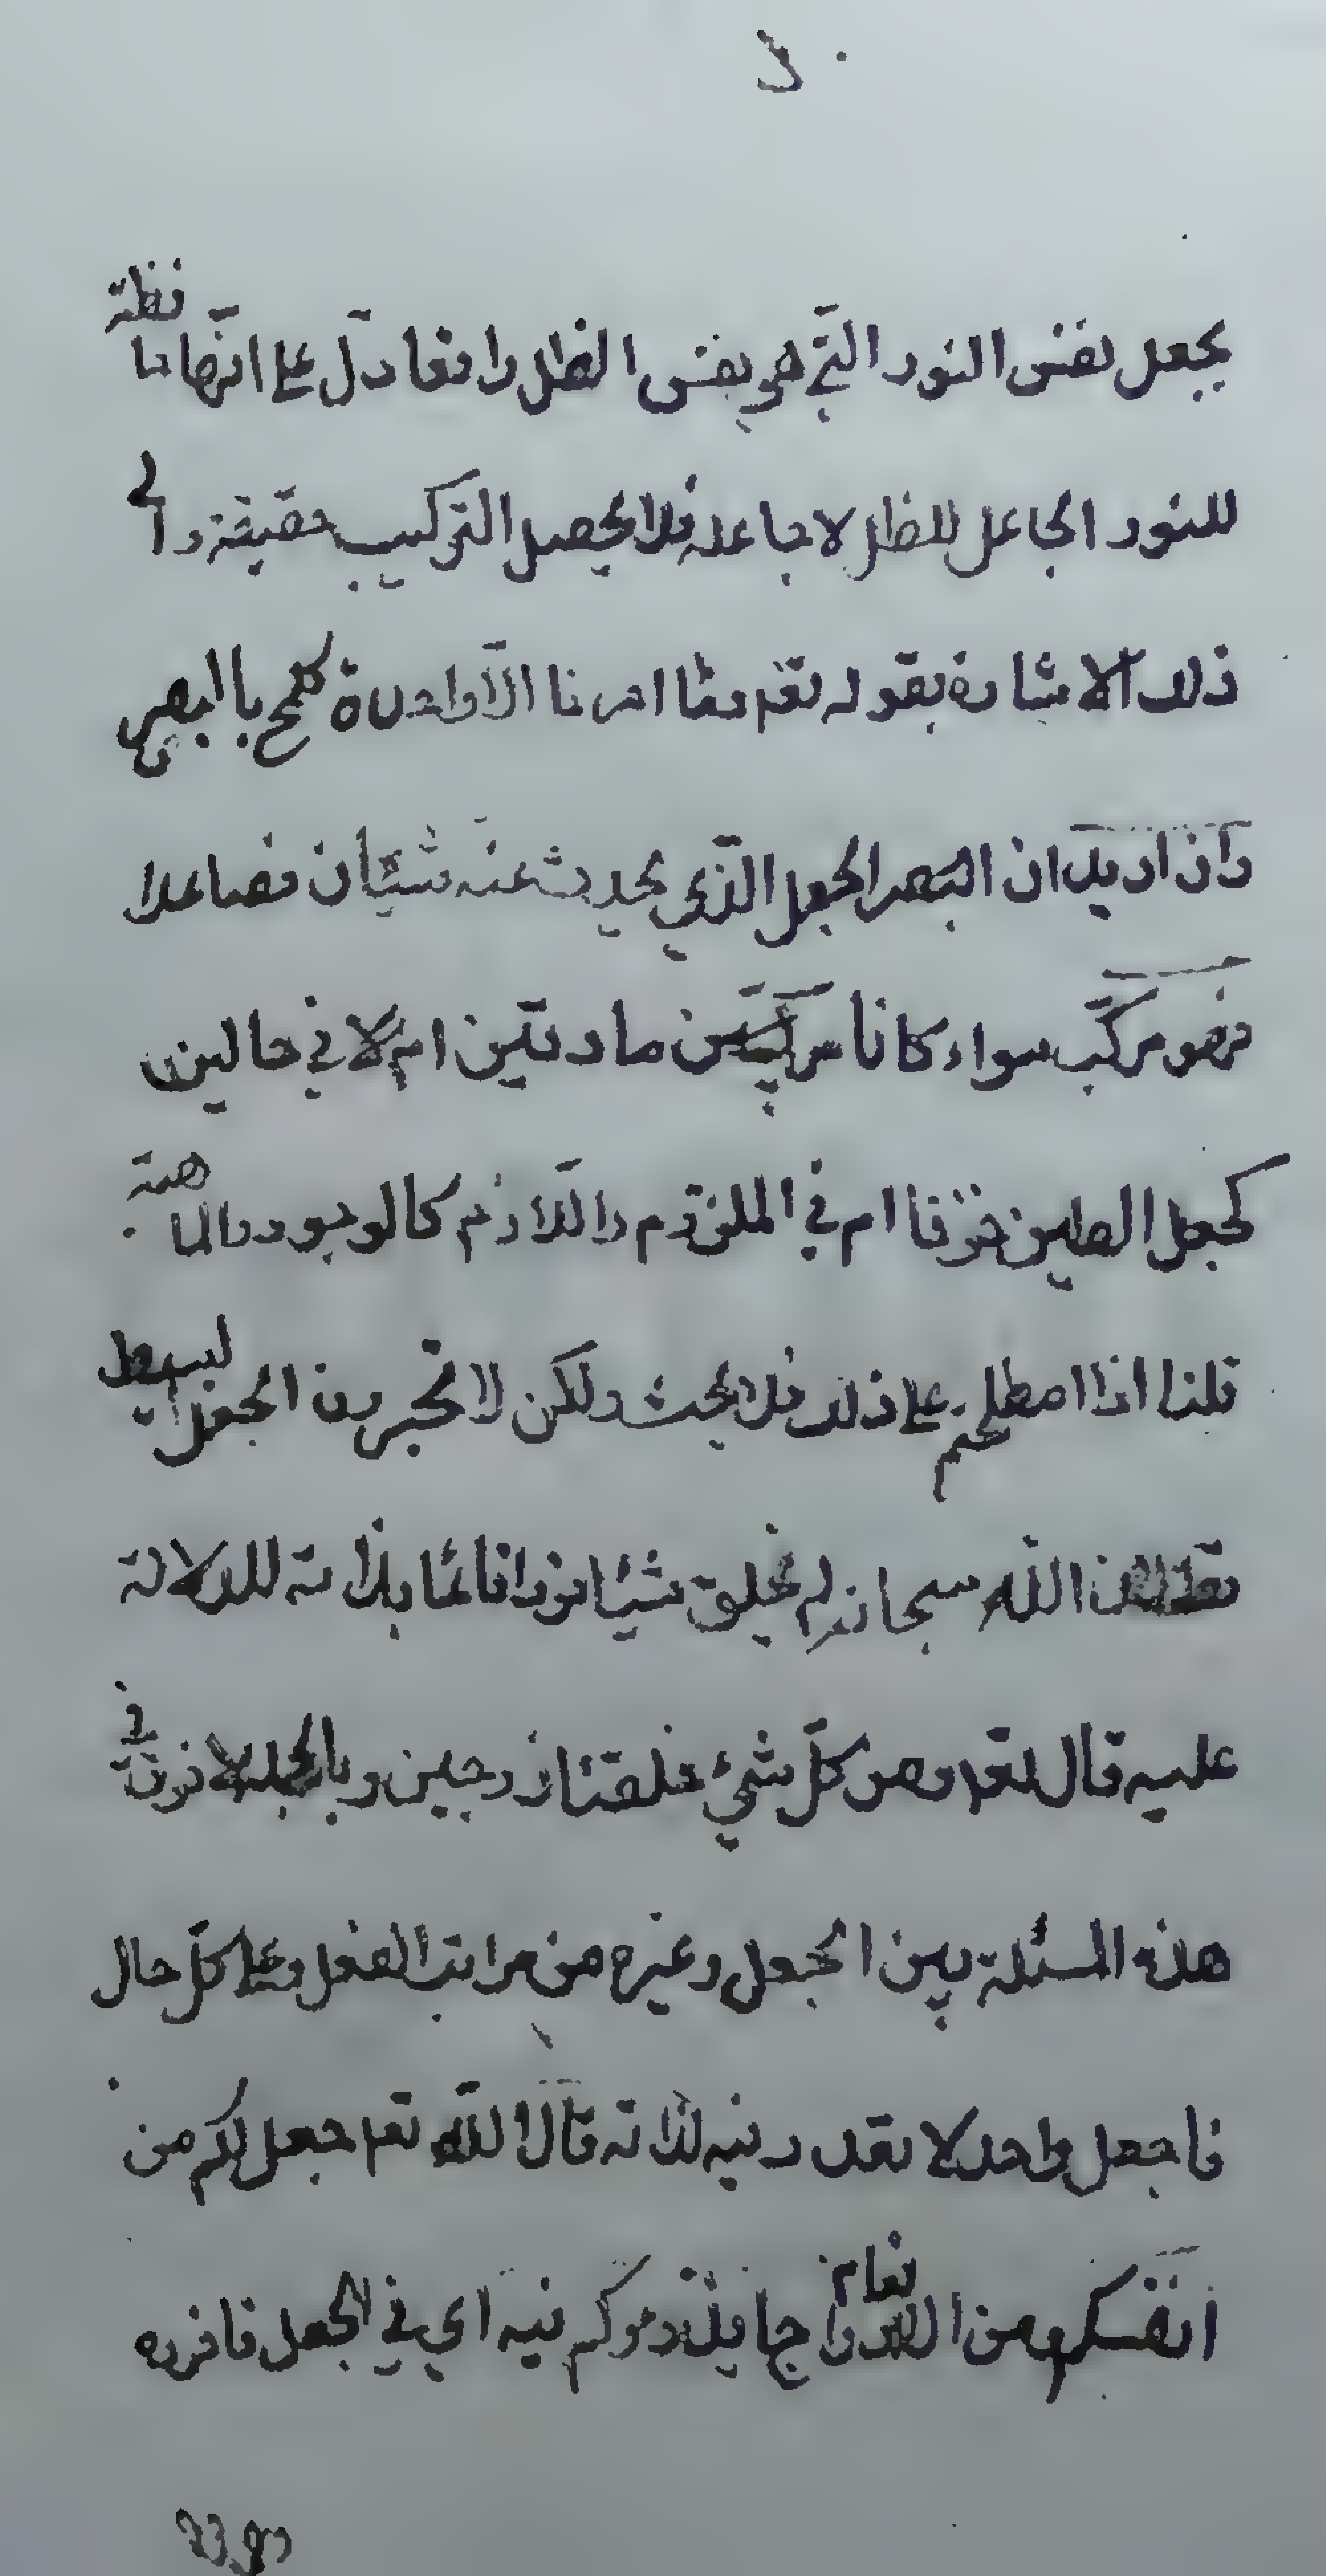 يجعل نفس النور التّي هي بفس الظل وانما دلّ على انّها حافظة
للنور الجاعل للظل لا جاعله فلا يحصل التركيب حقيقة والى
ذلك الاشارة بقوله تعم وما امرنا الاّ واحدة كلمح باالبصر
وان اريد ان البصر الجعل الذّي يحدث عنه شيئان فصاعدا
فهو مركّب سواء كانا مركبّين من مادتين ام لا في حالين
كجعل الطين خزفا ام في الملزوم واللاّزم كالوجود والماهية
قلنا اذا اصطلحتم على ذلك فلا بحث ولكن لا تجرون الجعل البسيط
الله سبحانه لم يخلق شيئا فردا قائما بذاته للدلالة
عليه قال تعم ومن كلّ شيئ خلقنا زوجين وبالجملة لا فرق في
هذه المسئلة بين الجعل وغيره من مراتب الفعل وعلى كلّ حال
فا جعل واحد لا تعدد فيه لذاته قال اللّه تعم جعل لكم من
انفسكم ومن الانعام ازواجا يذرؤكم فيه اي في الجعل فافرده